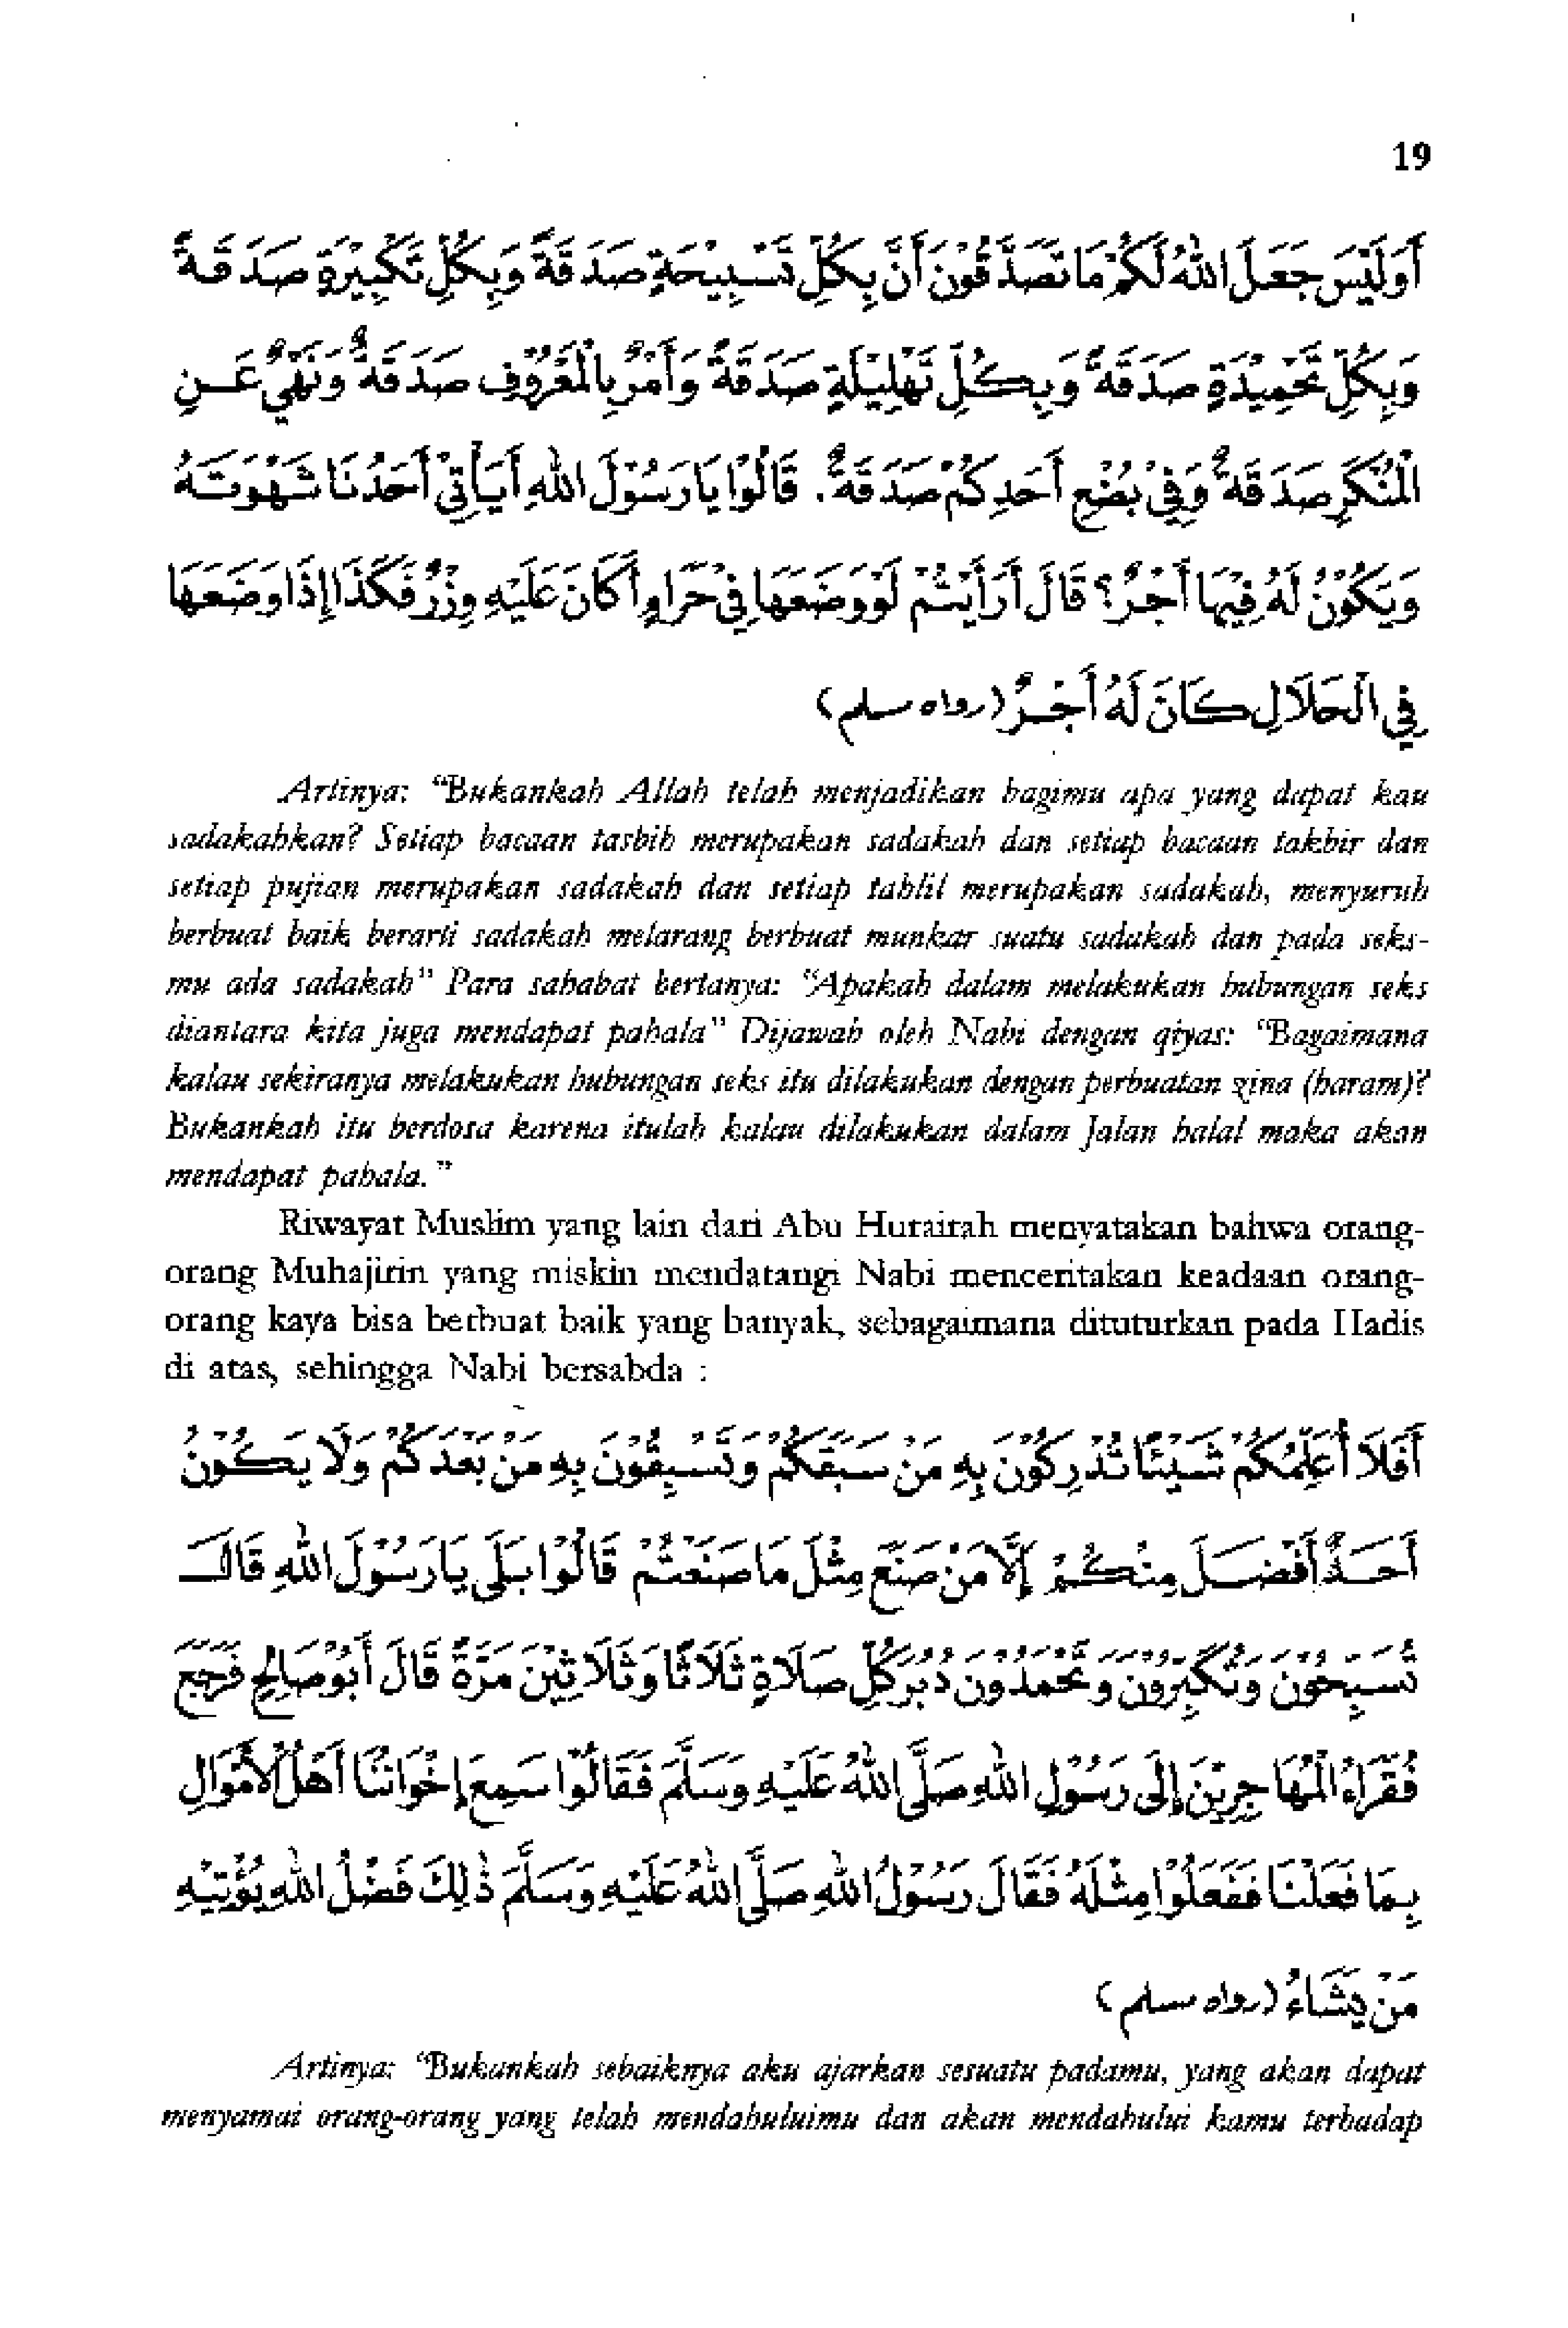 19
أَوَلَيْسَ جَعَلَ اللهُ لَكُمْ مَا تَصَدَّقُوْنَ أَنَّ بِكُلِّ تَسْبِيْحَةٍ صَدَقَةً وَبِكُلِّ تَكْبِيْرَةٍ صَدَقَةً
وَبِكُلِّ تَحْمِيْدَةٍ صَدَقَةً وَبِكُلِّ تَهْلِيْلَةٍ صَدَقَةً وَأَمْرٌ بِالْمَعْرُوْفِ صَدَقَةٌ وَنَهْيٌ عَنِ
الْمُنْكَرِ صَدَقَةٌ وَفِيْ بُضْعِ أَحَدِكُمْ صَدَقَةٌ. قَالُوْا يَا رَسُوْلَ اللهِ أَيَأْتِيْ أَحَدُنَا شَهْوَتَهُ
وَيَكُوْنُ لَهُ فِيْهَا أَجْرٌ؟ قَالَ أَرَأَيْتُمْ لَوْ وَضَعَهَا فِيْ حَرَامٍ أَكَانَ عَلَيْهِ وِزْرٌ فَكَذَا إِذَا وَضَعَهَا
فِي الْحَلَالِ كَانَ لَهُ أَجْرٌ (رواه مسلم)
Artinya: “Bukankah Allah telah menjadikan bagimu apa yang dapat kau
sadakahkan? Setiap bacaan tasbih merupakan sadakah dan setiap bacaan takbir dan
setiap pujian merupakan sadakah dan setiap tahlil merupakan sadakah, menyuruh
berbuat baik berarti sadakah melarang berbuat munkar suatu sadakah dan pada seks-
mu ada sadakah” Para sahabat bertanya: “Apakah dalam melakukan hubungan seks
diantara kita juga mendapat pahala” Dijawab oleh Nabi dengan qiyas: “Bagaimana
kalau sekiranya melakukan hubungan seks itu dilakukan dengan perbuatan zina (haram)?
Bukankah itu berdosa karena itulah kalau dilakukan dalam Jalan halal maka akan
mendapat pahala.”
Riwayat Muslim yang lain dari Abu Hurairah menyatakan bahwa orang-
orang Muhajirin yang miskin mendatangi Nabi menceritakan keadaan orang-
orang kaya bisa berbuat baik yang banyak, sebagaimana dituturkan pada Hadis
di atas, sehingga Nabi bersabda :
أَفَلَا أُعَلِّمُكُمْ شَيْئًا تُدْرِكُوْنَ بِهِ مَنْ سَبَقَكُمْ وَتَسْبِقُوْنَ بِهِ مَنْ بَعْدَكُمْ وَلَا يَكُوْنُ
أَحَدٌ أَفْضَلَ مِنْكُمْ إِلَّا مَنْ صَنَعَ مِثْلَ مَا صَنَعْتُمْ قَالُوْا بَلَى يَا رَسُوْلَ اللهِ قَالَ
تُسَبِّحُوْنَ وَتُكَبِّرُوْنَ وَتَحْمَدُوْنَ دُبُرَ كُلِّ صَلَاةٍ ثَلَاثًا وَثَلَاثِيْنَ مَرَّةً قَالَ أَبُوْ صَالِحٍ فَرَجَعَ
فُقَرَاءُ الْمُهَاجِرِيْنَ إِلَى رَسُوْلِ اللهِ صَلَّى اللهُ عَلَيْهِ وَسَلَّمَ فَقَالُوْا سَمِعَ إِخْوَانُنَا أَهْلُ الْأَمْوَالِ
بِمَا فَعَلْنَا فَفَعَلُوْا مِثْلَهُ فَقَالَ رَسُوْلُ اللهِ صَلَّى اللهُ عَلَيْهِ وَسَلَّمَ ذٰلِكَ فَضْلُ اللهِ يُؤْتِيْهِ
مَنْ يَشَاءُ (رواه مسلم)
Artinya: “Bukankah sebaiknya aku ajarkan sesuatu padamu, yang akan dapat
menyamai orang-orang yang telah mendahuluimu dan akan mendahului kamu terhadap